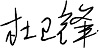 杜卫锋